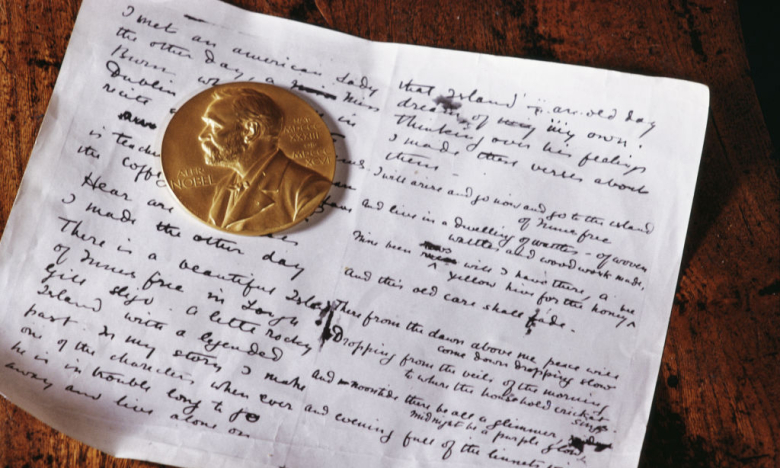 I met an american lady
the other day, a Miss
Burn
Dublin
write
in
is teach
the coff
Hear are
I made the other day
There is a beautiful Island
of Inner free in Lough
Gill Sligo. A little rocky
Island with a legended
past. In my story I make
one of the charecters when ever
he is in trouble long to go
away and live alone on
ALFR.
NOBEL
NAT.
MDCCC
XXXIII
OB.
MDCCC
XCVI
that Island – an old day
dream of my own.
Thinking over his feelings
I made these verses about
them –
I will arise and go now and go to the island
of Innis free
And live in a dwelling of wattles – of woven
wattles and wood work made.
Nine bean will I have there, a
yellow hive for the honey
And this old care shall fade.
There from the dawn above me peace will
come down dropping slow
Dropping from the veils of the morning
to where the household cricket sings
And noontide there be all a glimmer,
midnight be a purple glow
And evening full of the linnets